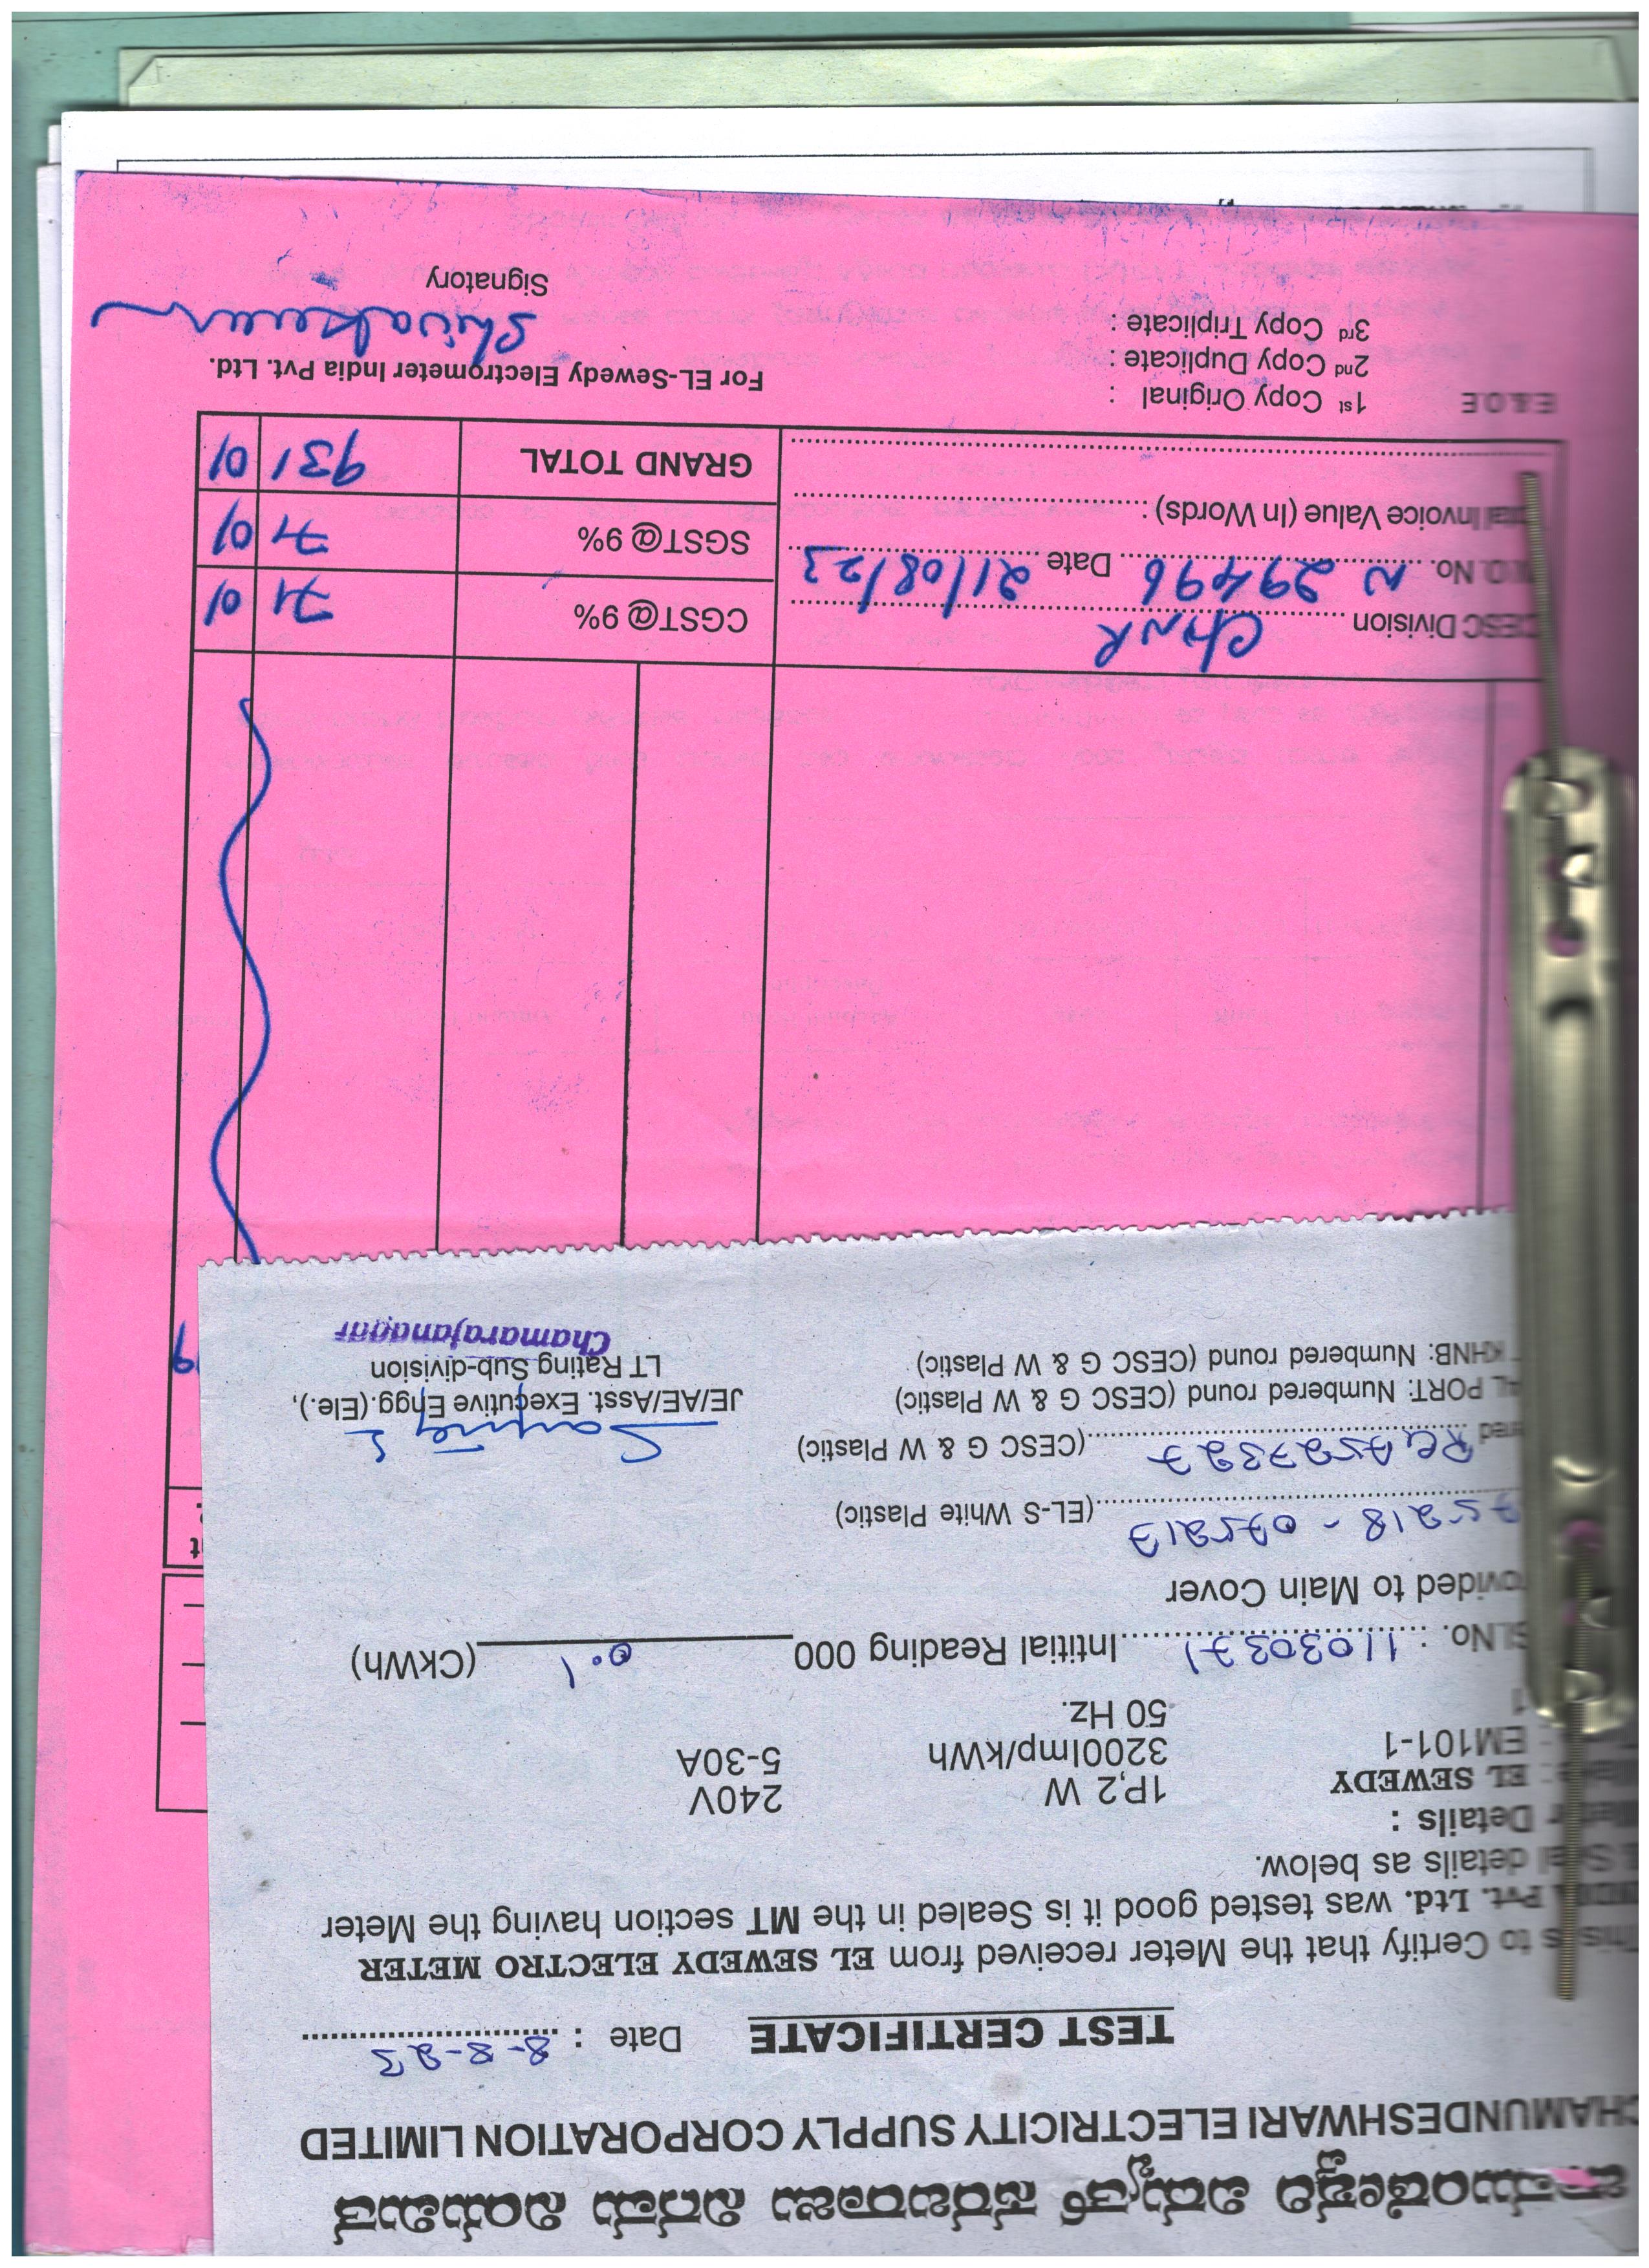 ಚಾಮುಂಡೇಶ್ವರಿ ವಿದ್ಯುತ್ ಸರಬರಾಜು ನಿಗಮ ನಿಯಮಿತ
CHAMUNDESHWARI ELECTRICITY SUPPLY CORPORATION LIMITED
TEST CERTIFICATE Date : 8-8-23
This is to Certify that the Meter received from EL SEWEDY ELECTRO METER
Pvt. Ltd. was tested good it is Sealed in the MT section having the Meter
details as below.
Details :
EL SEWEDY 1P,2 W 240V
EM101-1 3200Imp/kWh 5-30A
50 Hz.
Sl.No. : 11030371 Intitial Reading 000 0.1 (CkWh)
ovided to Main Cover
75218 - 075217 (EL-S White Plastic)
ered (CESC G & W Plastic)
AL PORT: Numbered round (CESC G & W Plastic)
KHNB: Numbered round (CESC G & W Plastic)
JE/AE/Asst. Executive Engg.(Ele.),
LT Rating Sub-division
Chamarajanagar
CESC Division CHNR CGST@ 9% 71 01
O. No. N 29496 Date 21/08/23 SGST@ 9% 71 01
tal Invoice Value (In Words) :
GRAND TOTAL 931 01
E.&.O.E
1st Copy Original :
2nd Copy Duplicate :
3rd Copy Triplicate :
For EL-Sewedy Electrometer India Pvt. Ltd.
Signatory